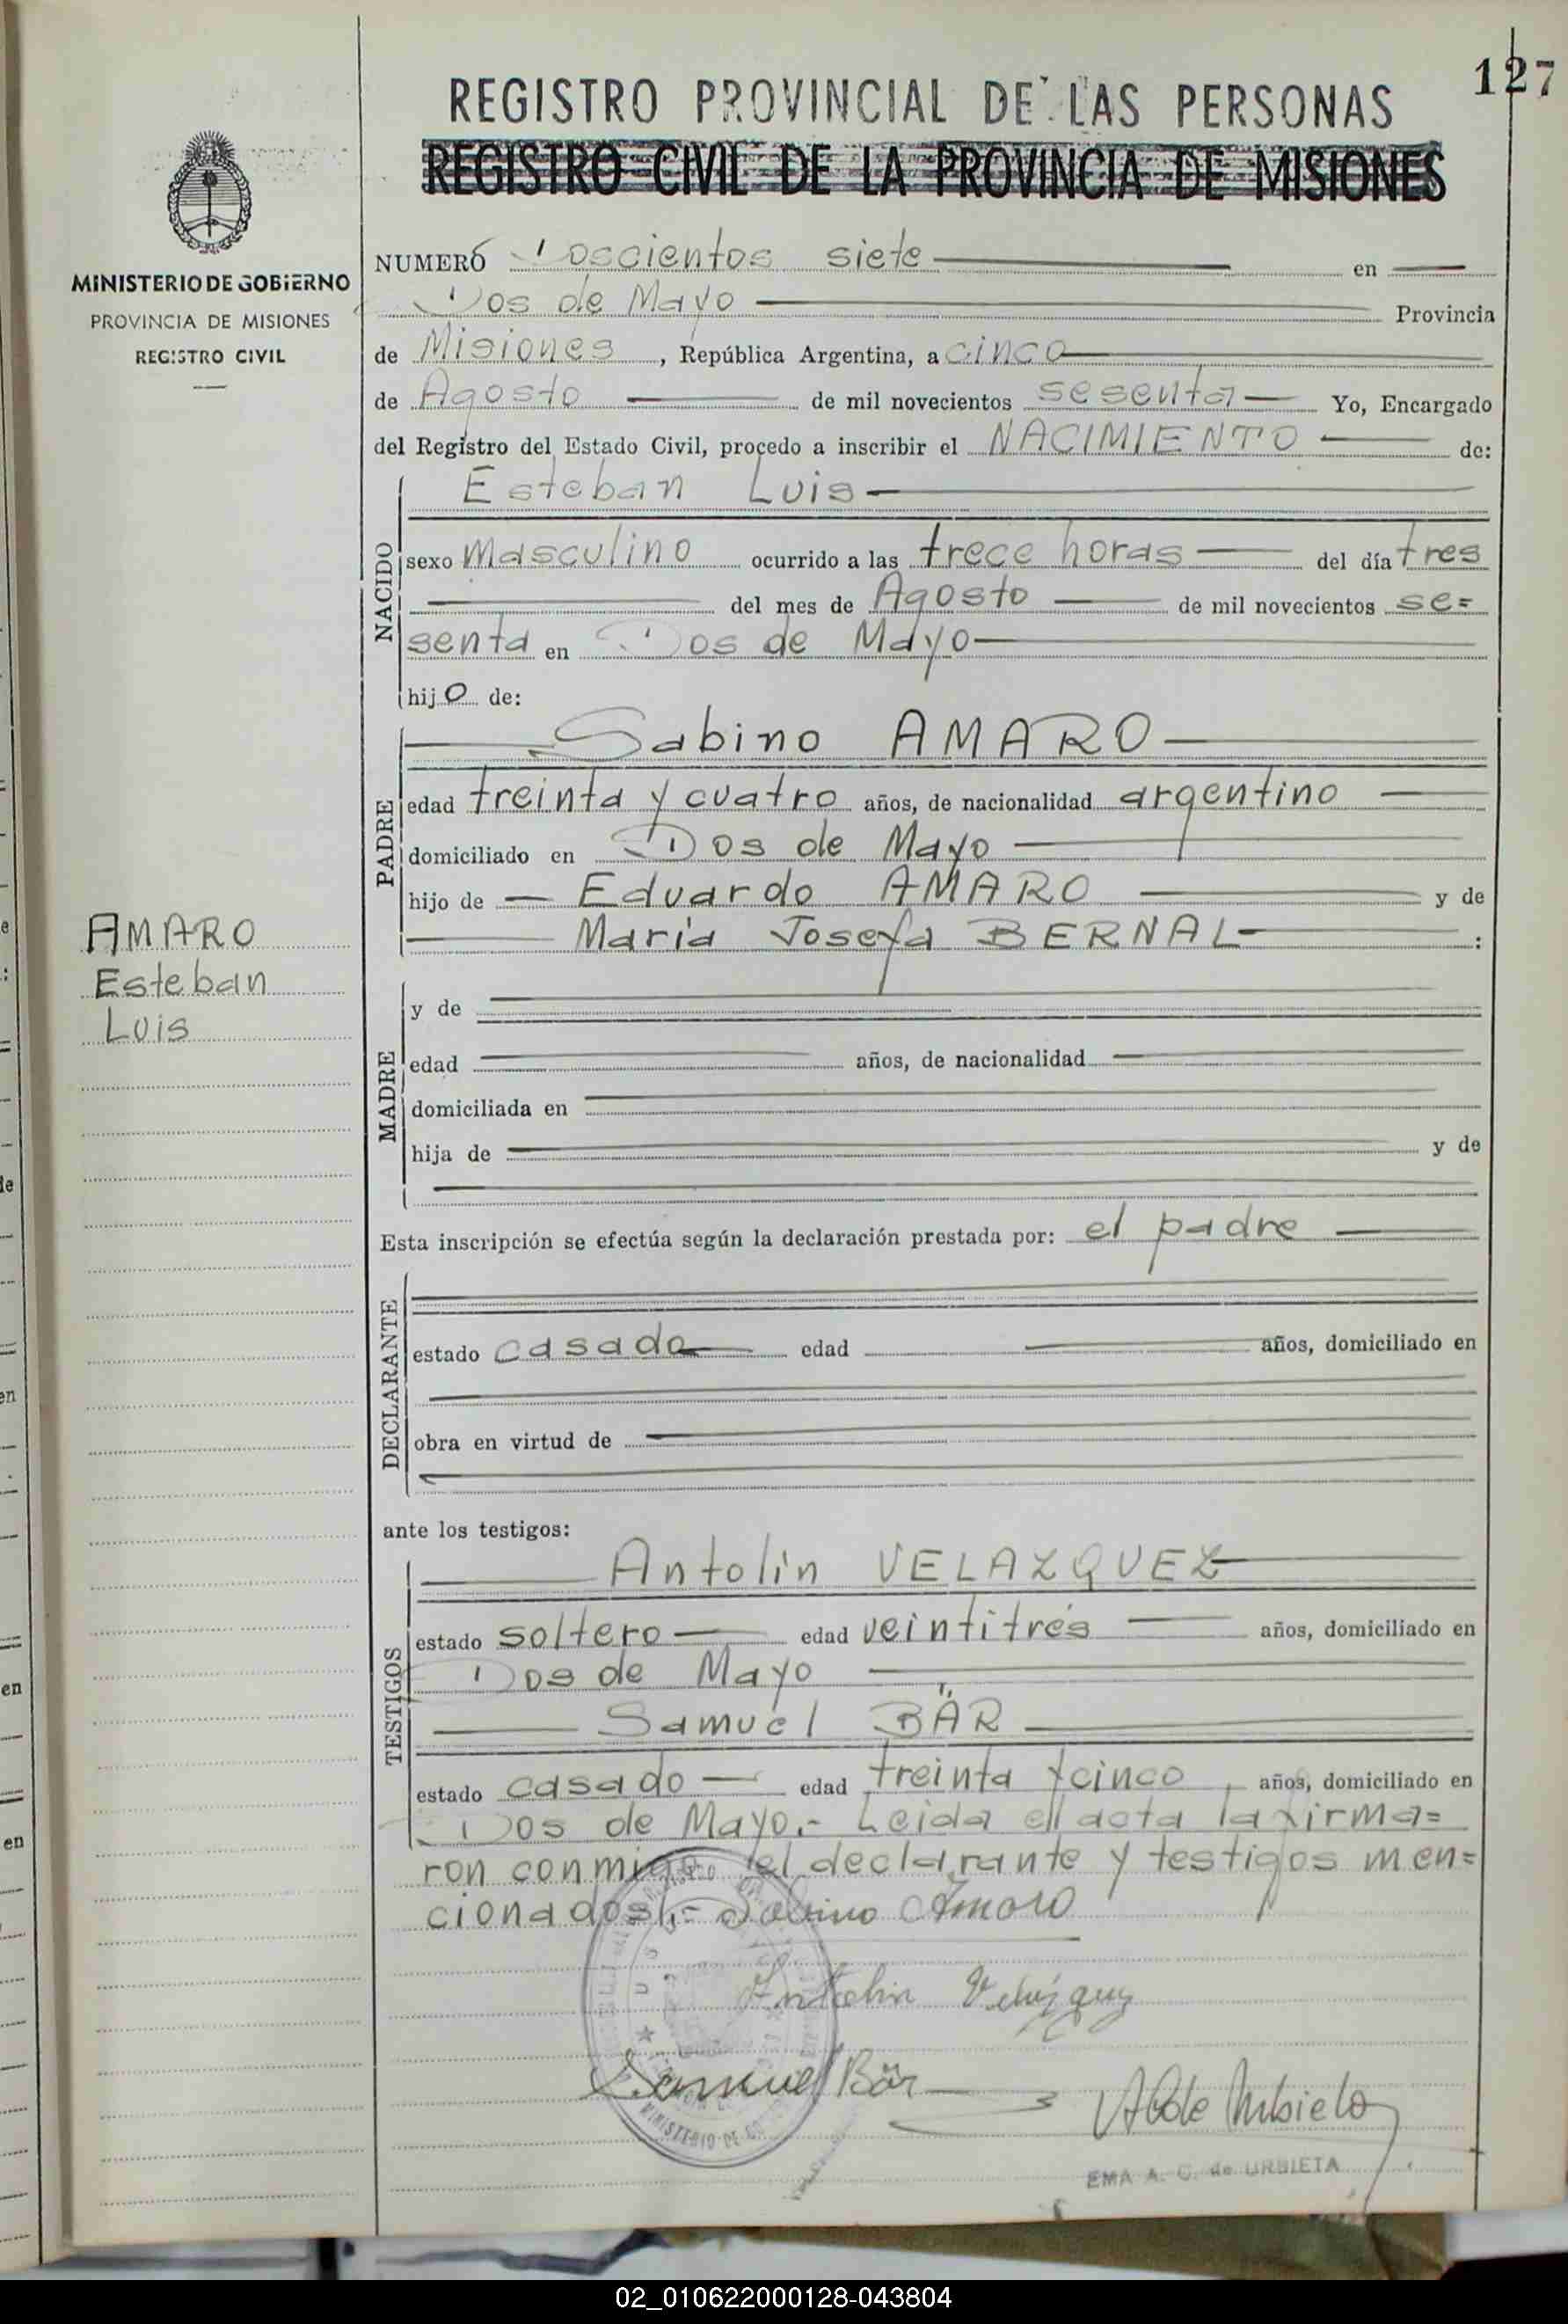 127
REGISTRO PROVINCIAL DE LAS PERSONAS
REGISTRO CIVIL DE LA PROVINCIA DE MISIONES
MINISTERIO DE GOBIERNO
PROVINCIA DE MISIONES
REGISTRO CIVIL
NUMERO Doscientos siete en
Dos de Mayo Provincia
de Misiones, República Argentina, a cinco
de Agosto de mil novecientos sesenta Yo, Encargado
del Registro del Estado Civil, procedo a inscribir el NACIMIENTO de:
NACIDO
Esteban Luis
sexo Masculino ocurrido a las trece horas del día tres
del mes de Agosto de mil novecientos se=
senta en Dos de Mayo
hijo de:
PADRE
Sabino AMARO
edad treinta y cuatro años, de nacionalidad argentino
domiciliado en Dos de Mayo
hijo de Eduardo AMARO y de
Maria Josefa BERNAL :
AMARO
Esteban
Luis
MADRE
y de
edad años, de nacionalidad
domiciliada en
hija de y de
Esta inscripción se efectúa según la declaración prestada por: el padre
DECLARANTE
estado casado edad años, domiciliado en
obra en virtud de
ante los testigos:
TESTIGOS
Antolin VELAZQUEZ
estado soltero edad veintitrés años, domiciliado en
Dos de Mayo
Samuel BÄR
estado casado edad treinta y cinco, años, domiciliado en
Dos de Mayo.- Leida el acta la firma=
ron conmigo el declarante y testigos men=
cionados.- Sabino Amaro
Antolin Velázquez
Samuel Bär
MINISTERIO DE
EMA A. C. de URBIETA
02_010622000128-043804